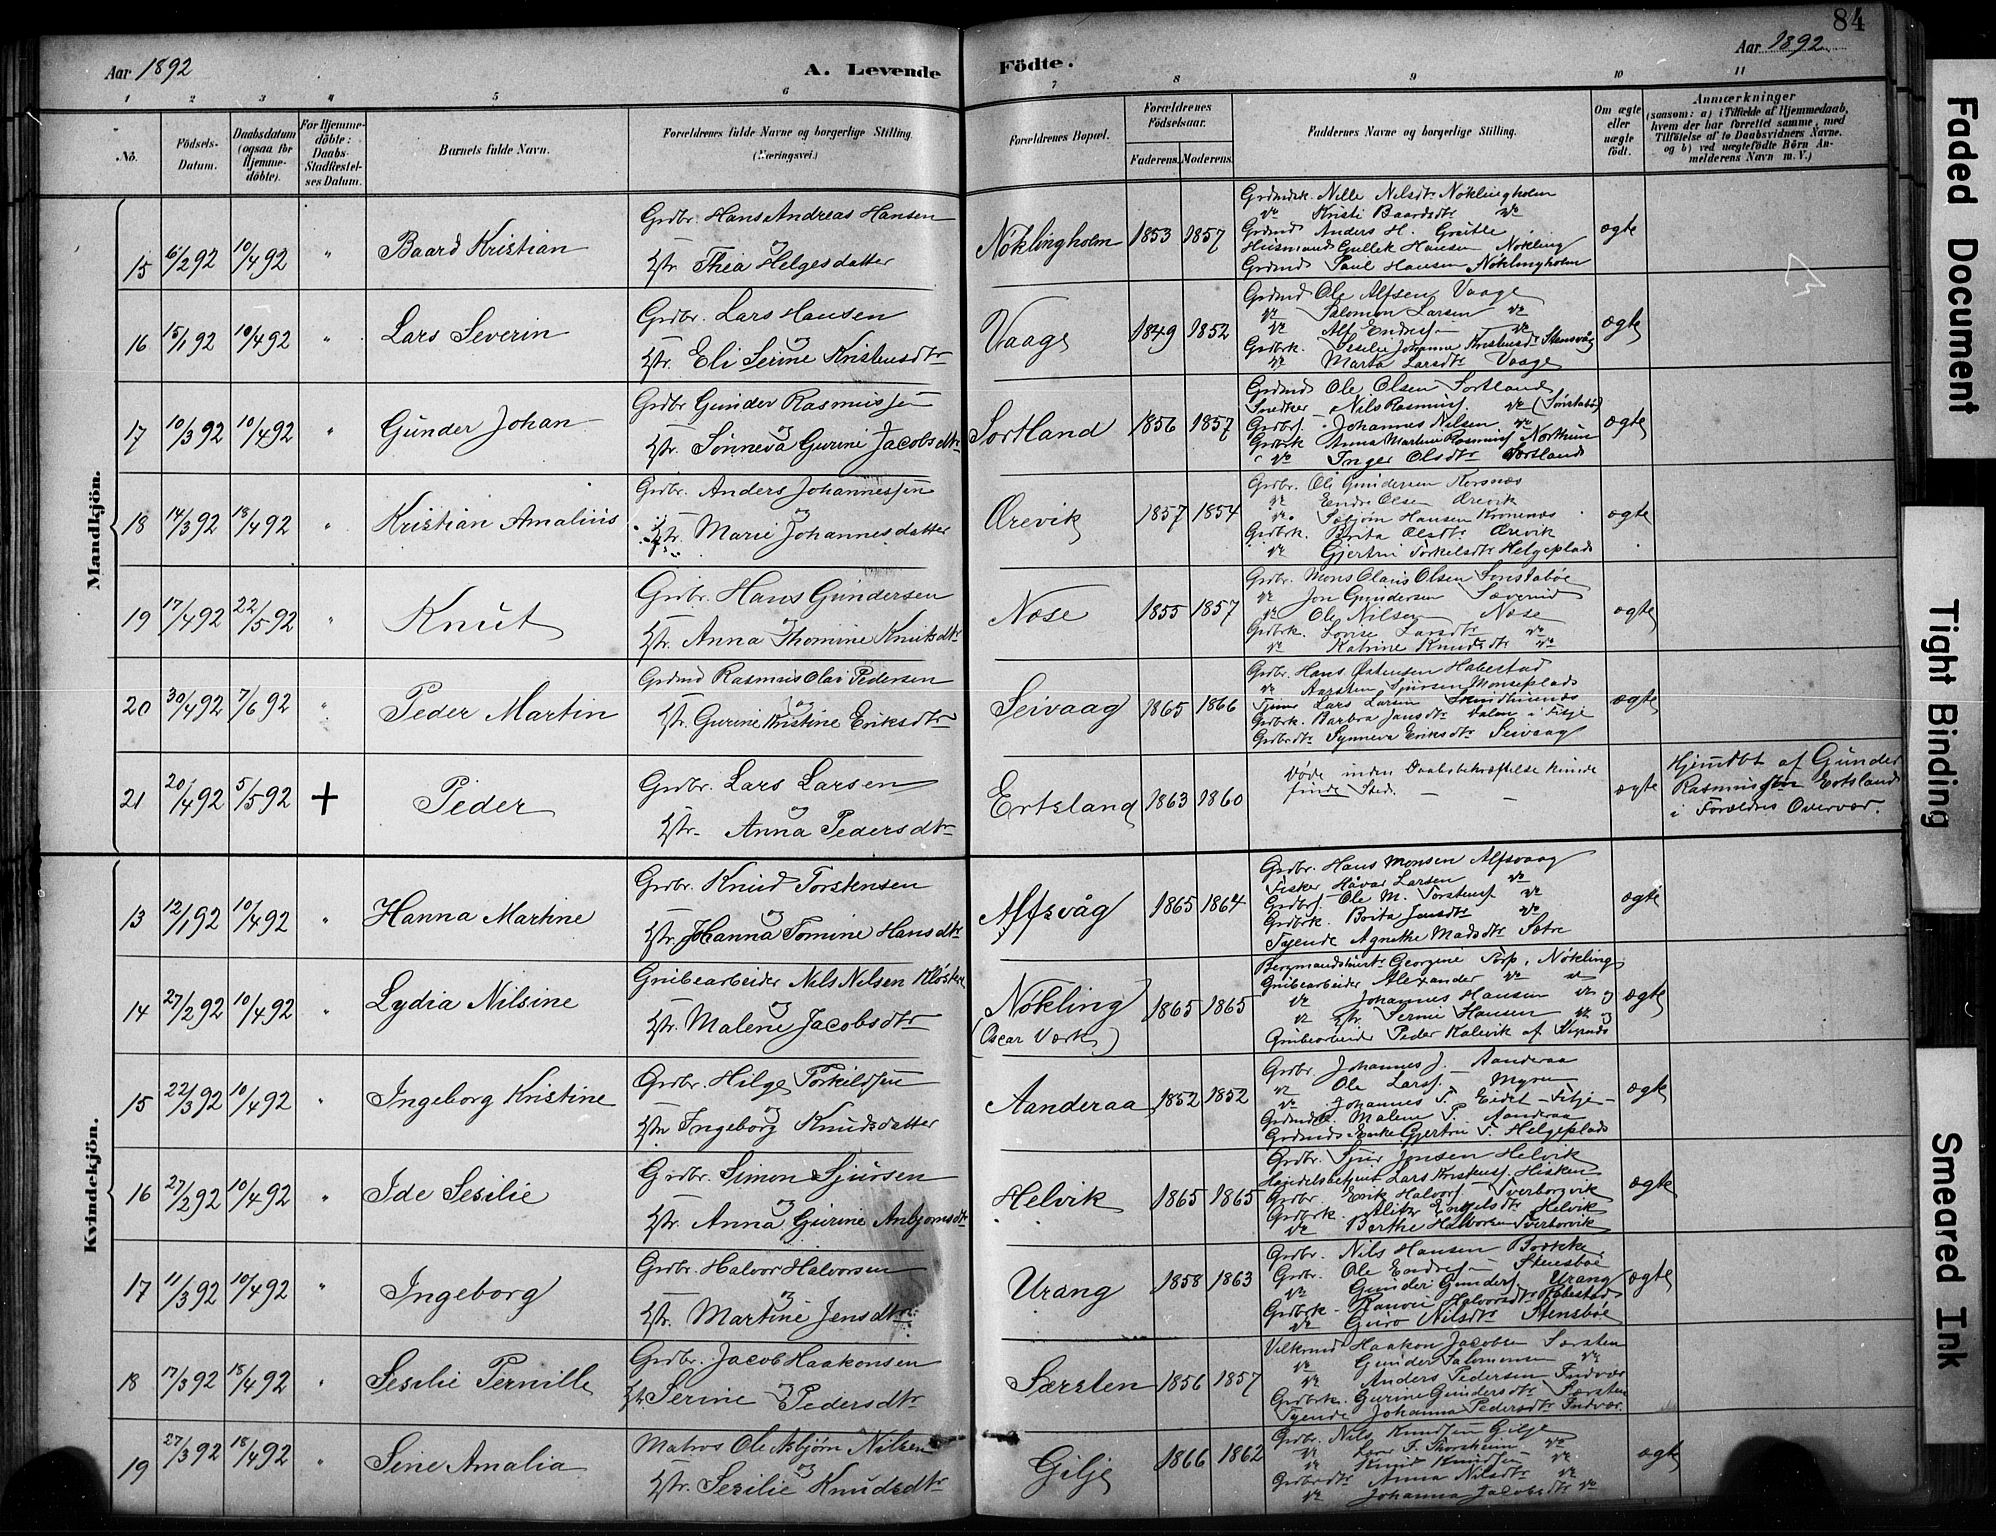 84
Aar 1892
A. Levende Födte.
Aar 1892
1 2 3 4 5 6 7 8 9 10 11
No.
Födsels-Datum.
Daabsdatum (ogsaa for Hjemmedöbte).
For Hjemmedöbte: Daabs-Stadfæstelses Datum.
Barnets fulde Navn.
Forældrenes fulde Navne og borgerlige Stilling. (Næringsvei.)
Forældrenes Bopæl.
Forældrenes Födselsaar.
Faderens. Moderens.
Faddernes Navne og borgerlige Stilling.
Om ægte eller uægte födt.
Anmærkninger
(saasom: a) i Tilfælde af Hjemmedaab, hvem der har forrettet samme, med Tilföielse af to Daabsvidners Navne. og b) ved uægtefödte Börn Anmelderens Navn m. V.)
Mandkjön.
15 6/2 92 10/4 92 " Baard Kristian
Grdbr. Hans Andreas Hansen
og
Hstr. Thea Helgesdatter
Nøklingholm 1853 1857
Nille Nilsdtr Nøklingholm
do Kristi Baardsdtr do
Grdmd Anders H.
Husmand Gullek Hansen Nøkling
Grdmd Paul Hansen Nøklingholm
ægte
16 15/1 92 10/4 92 " Lars Severin
Grdbr. Lars Hansen
og
Hstr. Eli Serine Kristensdtr
Vaage 1849 1852
Grdmd Ole Alfsen Vaage
do Salomon Larsen do
do Alf Endres. do
Grdbrk. Sesilie Johanne Kristensdtr Stensvåg
do Marta Larsdtr Vaage
ægte
17 10/3 92 10/4 92 " Gunder Johan
Grdbr Gunder Rasmussen
og
Hstr. Sønneva Gurine Jacobsdtr
Sortland 1856 1857
Grdmd Ole Olsen Sortland
Snedker Nils Rasmus. do (Sønstabø)
Grdbrs. Johannes Nilsen do
Grdbrk Anna Martine Rasmus
do Inger Olsdtr Sortland
ægte
18 14/3 92 18/4 92 " Kristian Amalius
Grdbr. Anders Johannessen
og
Hstr. Marie Johannesdatter
Ørevik 1857 1854
Grdbr. Ole Gundersen Korsnæs
do Endre Olsen Ørevik
do Hansen Kronenæs
Grdbrk. Brita Olsdtr Ørevik
do Gjertru Torkelsdtr Helgeplads
ægte
19 17/4 92 22/5 92 " Knut
Grdbr. Hans Gundersen
og
Hstr. Anna Thomine Knutsdtr
Næse 1855 1857
Grdbr. Mons Olaus Olsen Sønstabøe
do Jon Gundersen
do Ole Nilsen Næse
Grdbrk. Lovise Larsdtr do
do Katrine Knudsdtr do
ægte
20 30/4 92 7/6 92 " Peder Martin
Grdmd Rasmus Olai Pedersen
og
Hstr. Gurine Kristine Eriksdtr
Seivaag 1865 1866
Grdbr. Hans Østensen Habestad
do Sjursen Monseplads
Lars Larsen
Grdbrk. Barbra Jansdtr Dalen i Fitje
Grdbrdtr Synneva Eriksdtr Seivaag
ægte
21 20/4 92 5/5 92 + Peder
Grdbr. Lars Larsen
og
Hstr. Anna Pedersdtr
Ertsland 1863 1860
Døde inden Daabsbekræftelse kunde
finde Sted.
ægte
Hjemdbt af Gunder
Rasmussen Ertsland
i Forældres Overvær.
Kvindekjön.
13 12/1 92 10/4 92 " Hanna Martine
Grdbr. Knud Torstensen
og
Hstr. Johanna Tomine Hansdtr
Alfsvåg 1865 1864
Grdbr. Hans Monsen Alfsvaag
Fisker Håvar Larsen do
Grdbrs. Ole M. Torstens. do
Grdbrk. Brita Jensdtr do
Tyende Agnethe Madsdtr Sætre
ægte
14 27/2 92 10/4 92 " Lydia Nilsine
Grubearbeider Nils Nilsen
og
Hstr. Malene Jacobsdtr
Nøkling
(Oscar Værk)
1865 1865
Bergmandshustr Georgine Torp, Nøkling
Grubearbeider Alexander do
do Johannes Hansen do og
do Hstr. Serine Hansen do og
Grubearbeider Peder Kalevik af
ægte
15 22/3 92 10/4 92 " Ingeborg Kristine
Grdbr. Hilge Torkildsen
og
Hstr Ingeborg Knudsdatter
Aanderaa 1852 1852
Grdbr. Johannes J. Aanderaa
do Ole Lars. Myren
do Johannes T. Eidet - Fitje
Malene T. Aanderaa
Grdmds Enke Gjertru T. Helgeplads
ægte
16 27/2 92 10/4 92 " Ide Sesilie
Grdbr. Simon Sjursen
og
Hstr. Anna Gurine Anbjørnsdtr
Helvik 1865 1865
Grdbr. Sjur Jonsen Helvik
Handelsbetjent Lars Kristens. Hisken
Grdbr. Erik Halvors. Sverborvik
Grdbrk. Engelsdtr Helvik
do Berthe Halvorsen Sverborvik
ægte
17 11/3 92 10/4 92 " Ingeborg
Grdbr. Halvor Halvorsen
og
Hstr. Martine Jensdtr
Urang 1858 1863
Grdbr. Nils Hansen Børkke
Grdbr. Ole Endres. Stensbøe
do Gunder Gunders. Urang
Grdbrk. Halvorsdtr Habestad
do Guro Nilsdtr Stensbøe
ægte
18 17/3 92 18/4 92 " Sesilie Pernille
Grdbr. Jacob Haakonsen
og
Hst. Serine Pedersdtr
Særsten 1856 1857
Haakon Jacobsen Særsten
do Gunder Salomonsen do
do Anders Pedersen Indvær
Grdbrk. Gurine Gundersdtr Særsten
Tyende Johanna Pedersdtr Indvær.
19 27/3 92 18/4 92 " Sine Amalia
Matros Ole Asbjørn Nilsen
og
Hstr. Sesilie Knudsdtr
Gilje 1866 1862
Grdbr. Nils Knudsen Gilje
do Lars T. Thorsheim do
do Knud Knudsen do
Grdbrdtr Anna Nilsdtr do
do Johanna Jacobsdtr do
ægte
Faded Document
Tight Binding
Smeared Ink